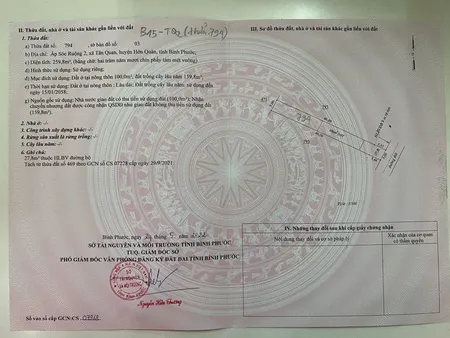 II. Thửa đất, nhà ở và tài sản khác gắn liền với đất
B15-T02 (thửa 794)
1. Thửa đất:
a) Thửa đất số: 794 , tờ bản đồ số: 03
b) Địa chỉ: Ấp Sóc Ruộng 2, xã Tân Quan, huyện Hớn Quản, tỉnh Bình Phước.
c) Diện tích: 259,8m², (bằng chữ: hai trăm năm mươi chín phẩy tám mét vuông).
d) Hình thức sử dụng: Sử dụng riêng;
đ) Mục đích sử dụng: Đất ở tại nông thôn 100,0m², đất trồng cây lâu năm 159,8m².
e) Thời hạn sử dụng: Đất ở tại nông thôn: Lâu dài; Đất trồng cây lâu năm: sử dụng đến
ngày 15/01/2058.
g) Nguồn gốc sử dụng: Nhà nước giao đất có thu tiền sử dụng đất (100,0m²); Nhận
chuyển nhượng đất được công nhận QSDĐ như giao đất không thu tiền sử dụng đất
(159,8m²).
2. Nhà ở: -/-
3. Công trình xây dựng khác: -/-
4. Rừng sản xuất là rừng trồng: -/-
5. Cây lâu năm: -/-
6. Ghi chú:
27,8m² thuộc HLBV đường bộ
Tách từ thửa đất số 469 theo GCN số CS 07228 cấp ngày 29/9/2021;
Bình Phước, ngày
SỞ TÀI NGUYÊN VÀ MÔI TRƯỜNG TỈNH BÌNH PHƯỚC
TUQ. GIÁM ĐỐC SỞ
PHÓ GIÁM ĐỐC VĂN PHÒNG ĐĂNG KÝ ĐẤT ĐAI TỈNH BÌNH PHƯỚC
Số vào sổ cấp GCN:CS
III. Sơ đồ thửa đất, nhà ở và tài sản khác gắn liền với đất
794
IV. Những thay đổi sau khi cấp giấy chứng nhận
Nội dung thay đổi và cơ sở pháp lý
Xác nhận của cơ quan
có thẩm quyền